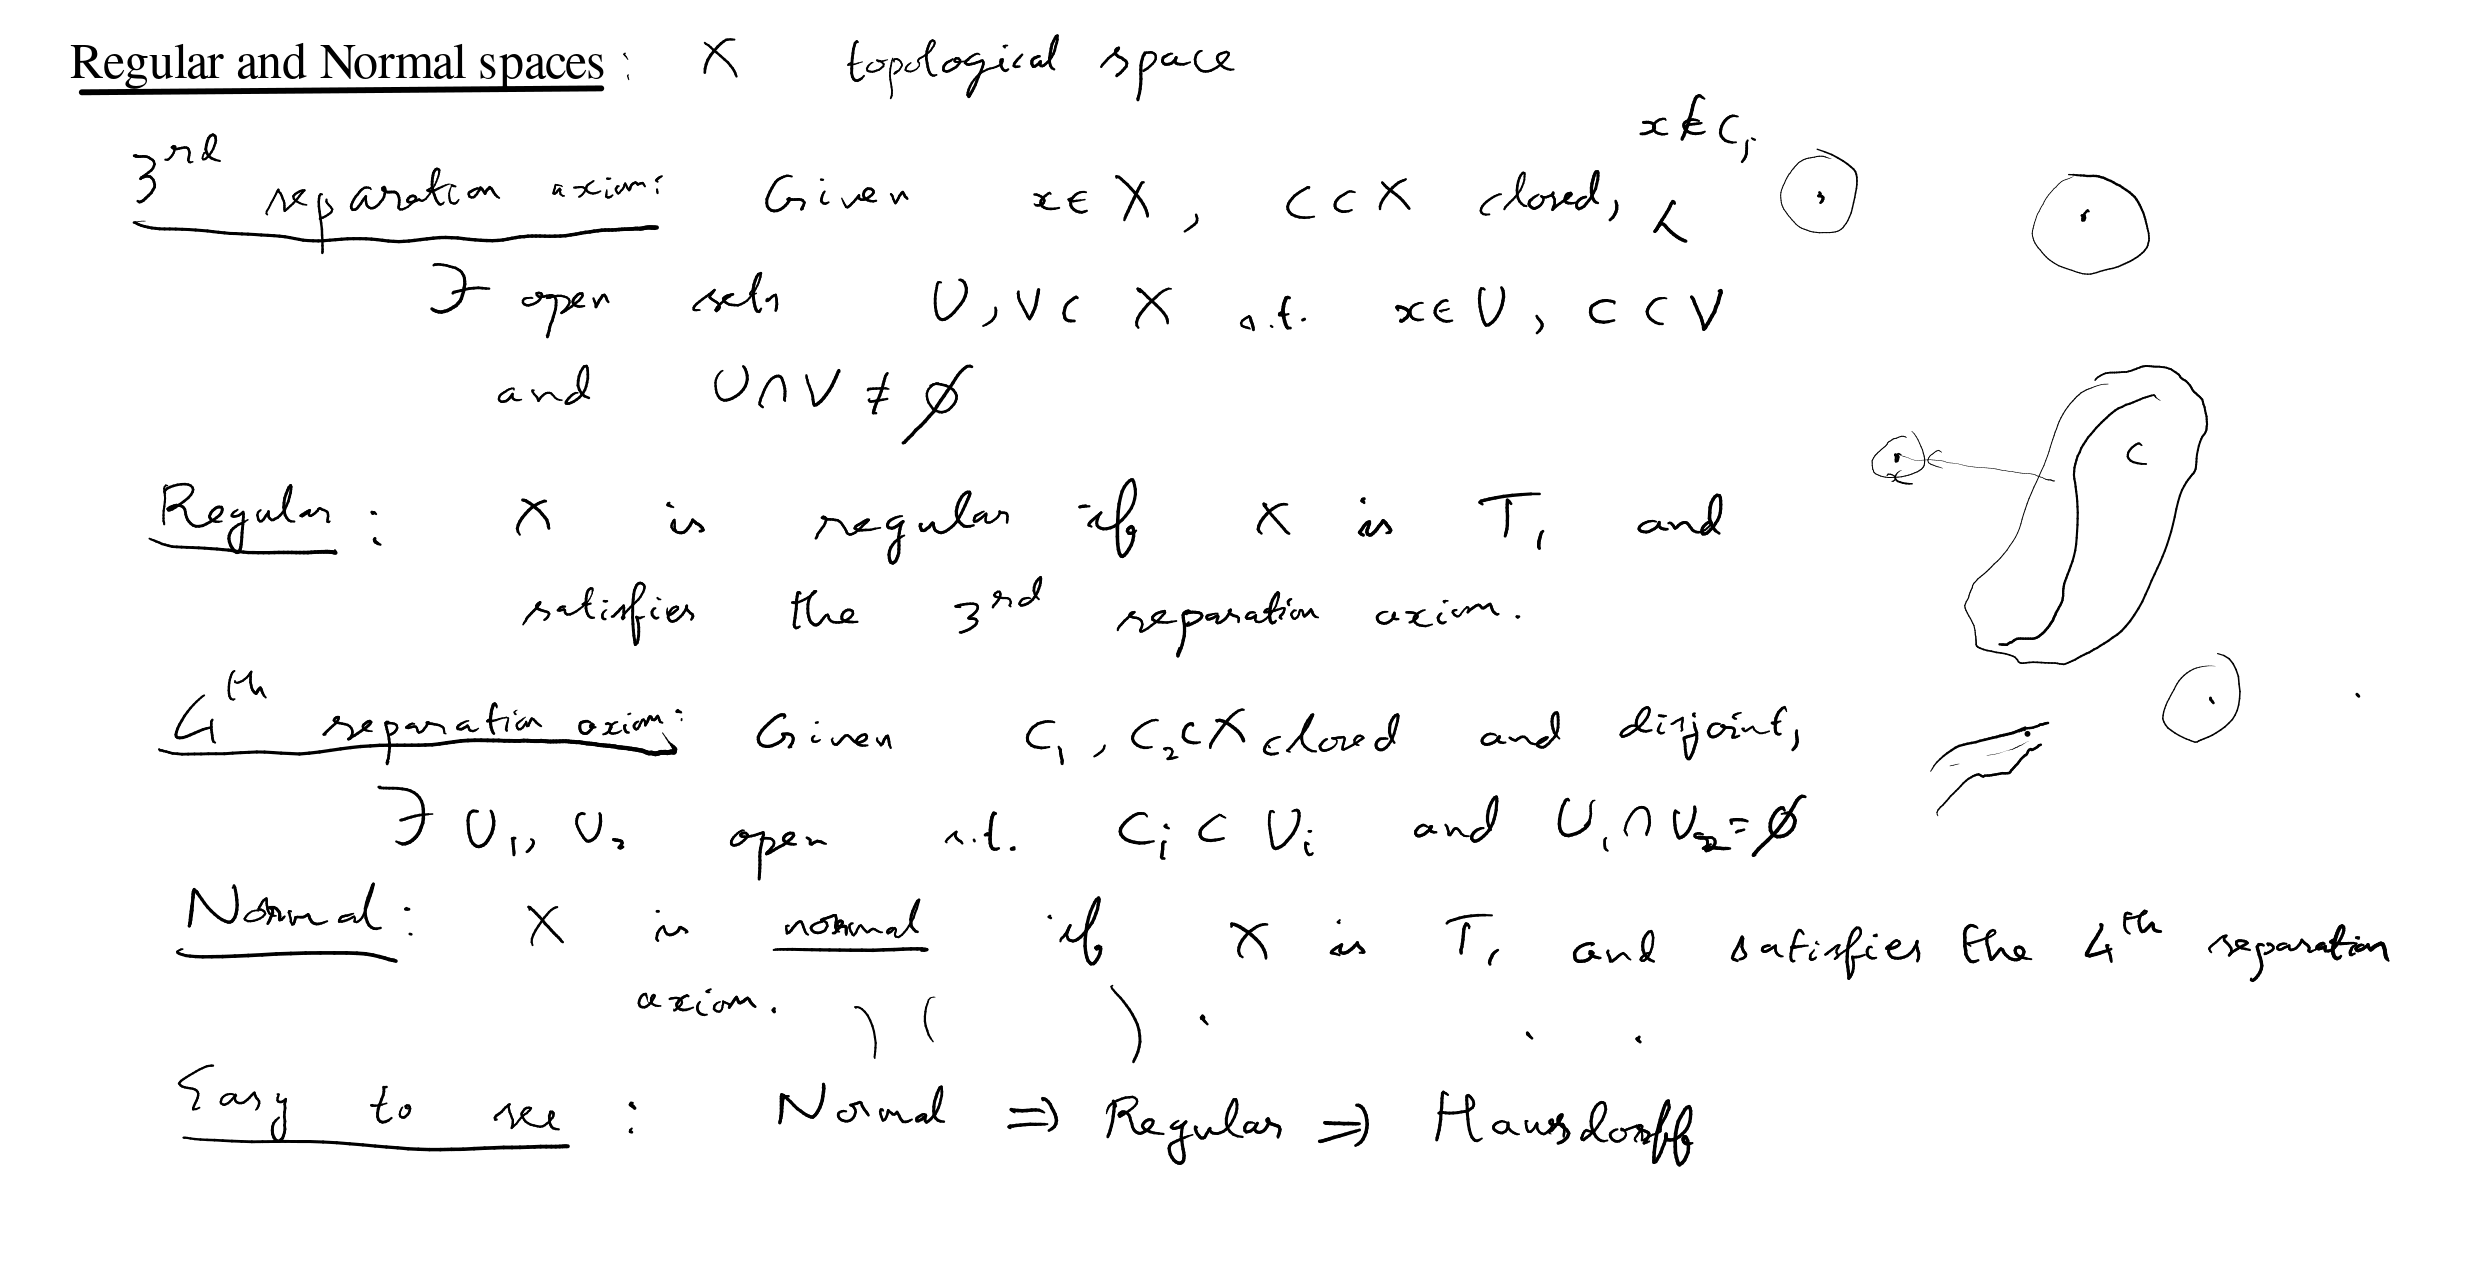 Regular and Normal spaces : X topological space
3rd separation axiom: Given x∈X, C⊂X closed, x∉C,
∃ open sets U,V⊂X s.t. x∈U, C⊂V
and U∩V ≠ ∅
C
x
Regular : X is regular if X is T₁ and
satisfies the 3rd separation axiom.
4th separation axiom: Given C₁, C₂⊂X closed and disjoint,
∃ U₁, U₂ open s.t. Cᵢ ⊂ Uᵢ and U₁∩U₂=∅
Normal : X is normal if X is T₁ and satisfies the 4th separation
axiom.
Easy to see : Normal ⇒ Regular ⇒ Hausdorff